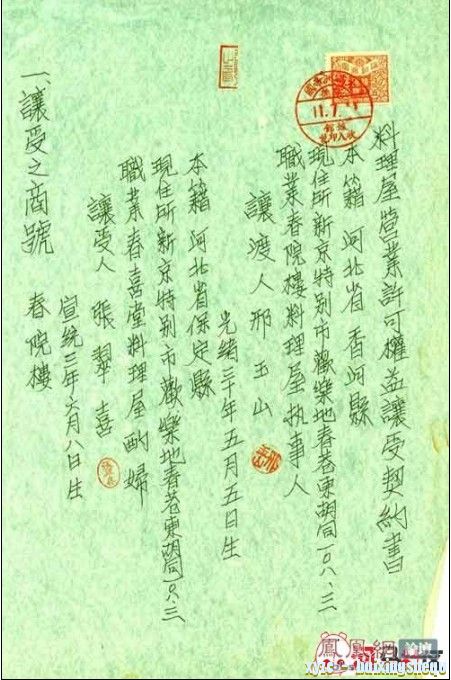 料理屋營業許可權益讓受契約書
本籍 河北省香河縣
現住所新京特別市歡樂地春巷東胡同一〇八、三
職業春院樓料理屋执事人
讓渡人 邢玉山
光緒三十年五月五日生
本籍 河北省保定縣
現住所新京特別市歡樂地春巷東胡同一〇八、三
職業春喜堂料理屋酌婦
讓受人 張翠喜
宣統三年六月八日生
一、讓受之商號 春院樓
11.7
鳳凰網 論壇